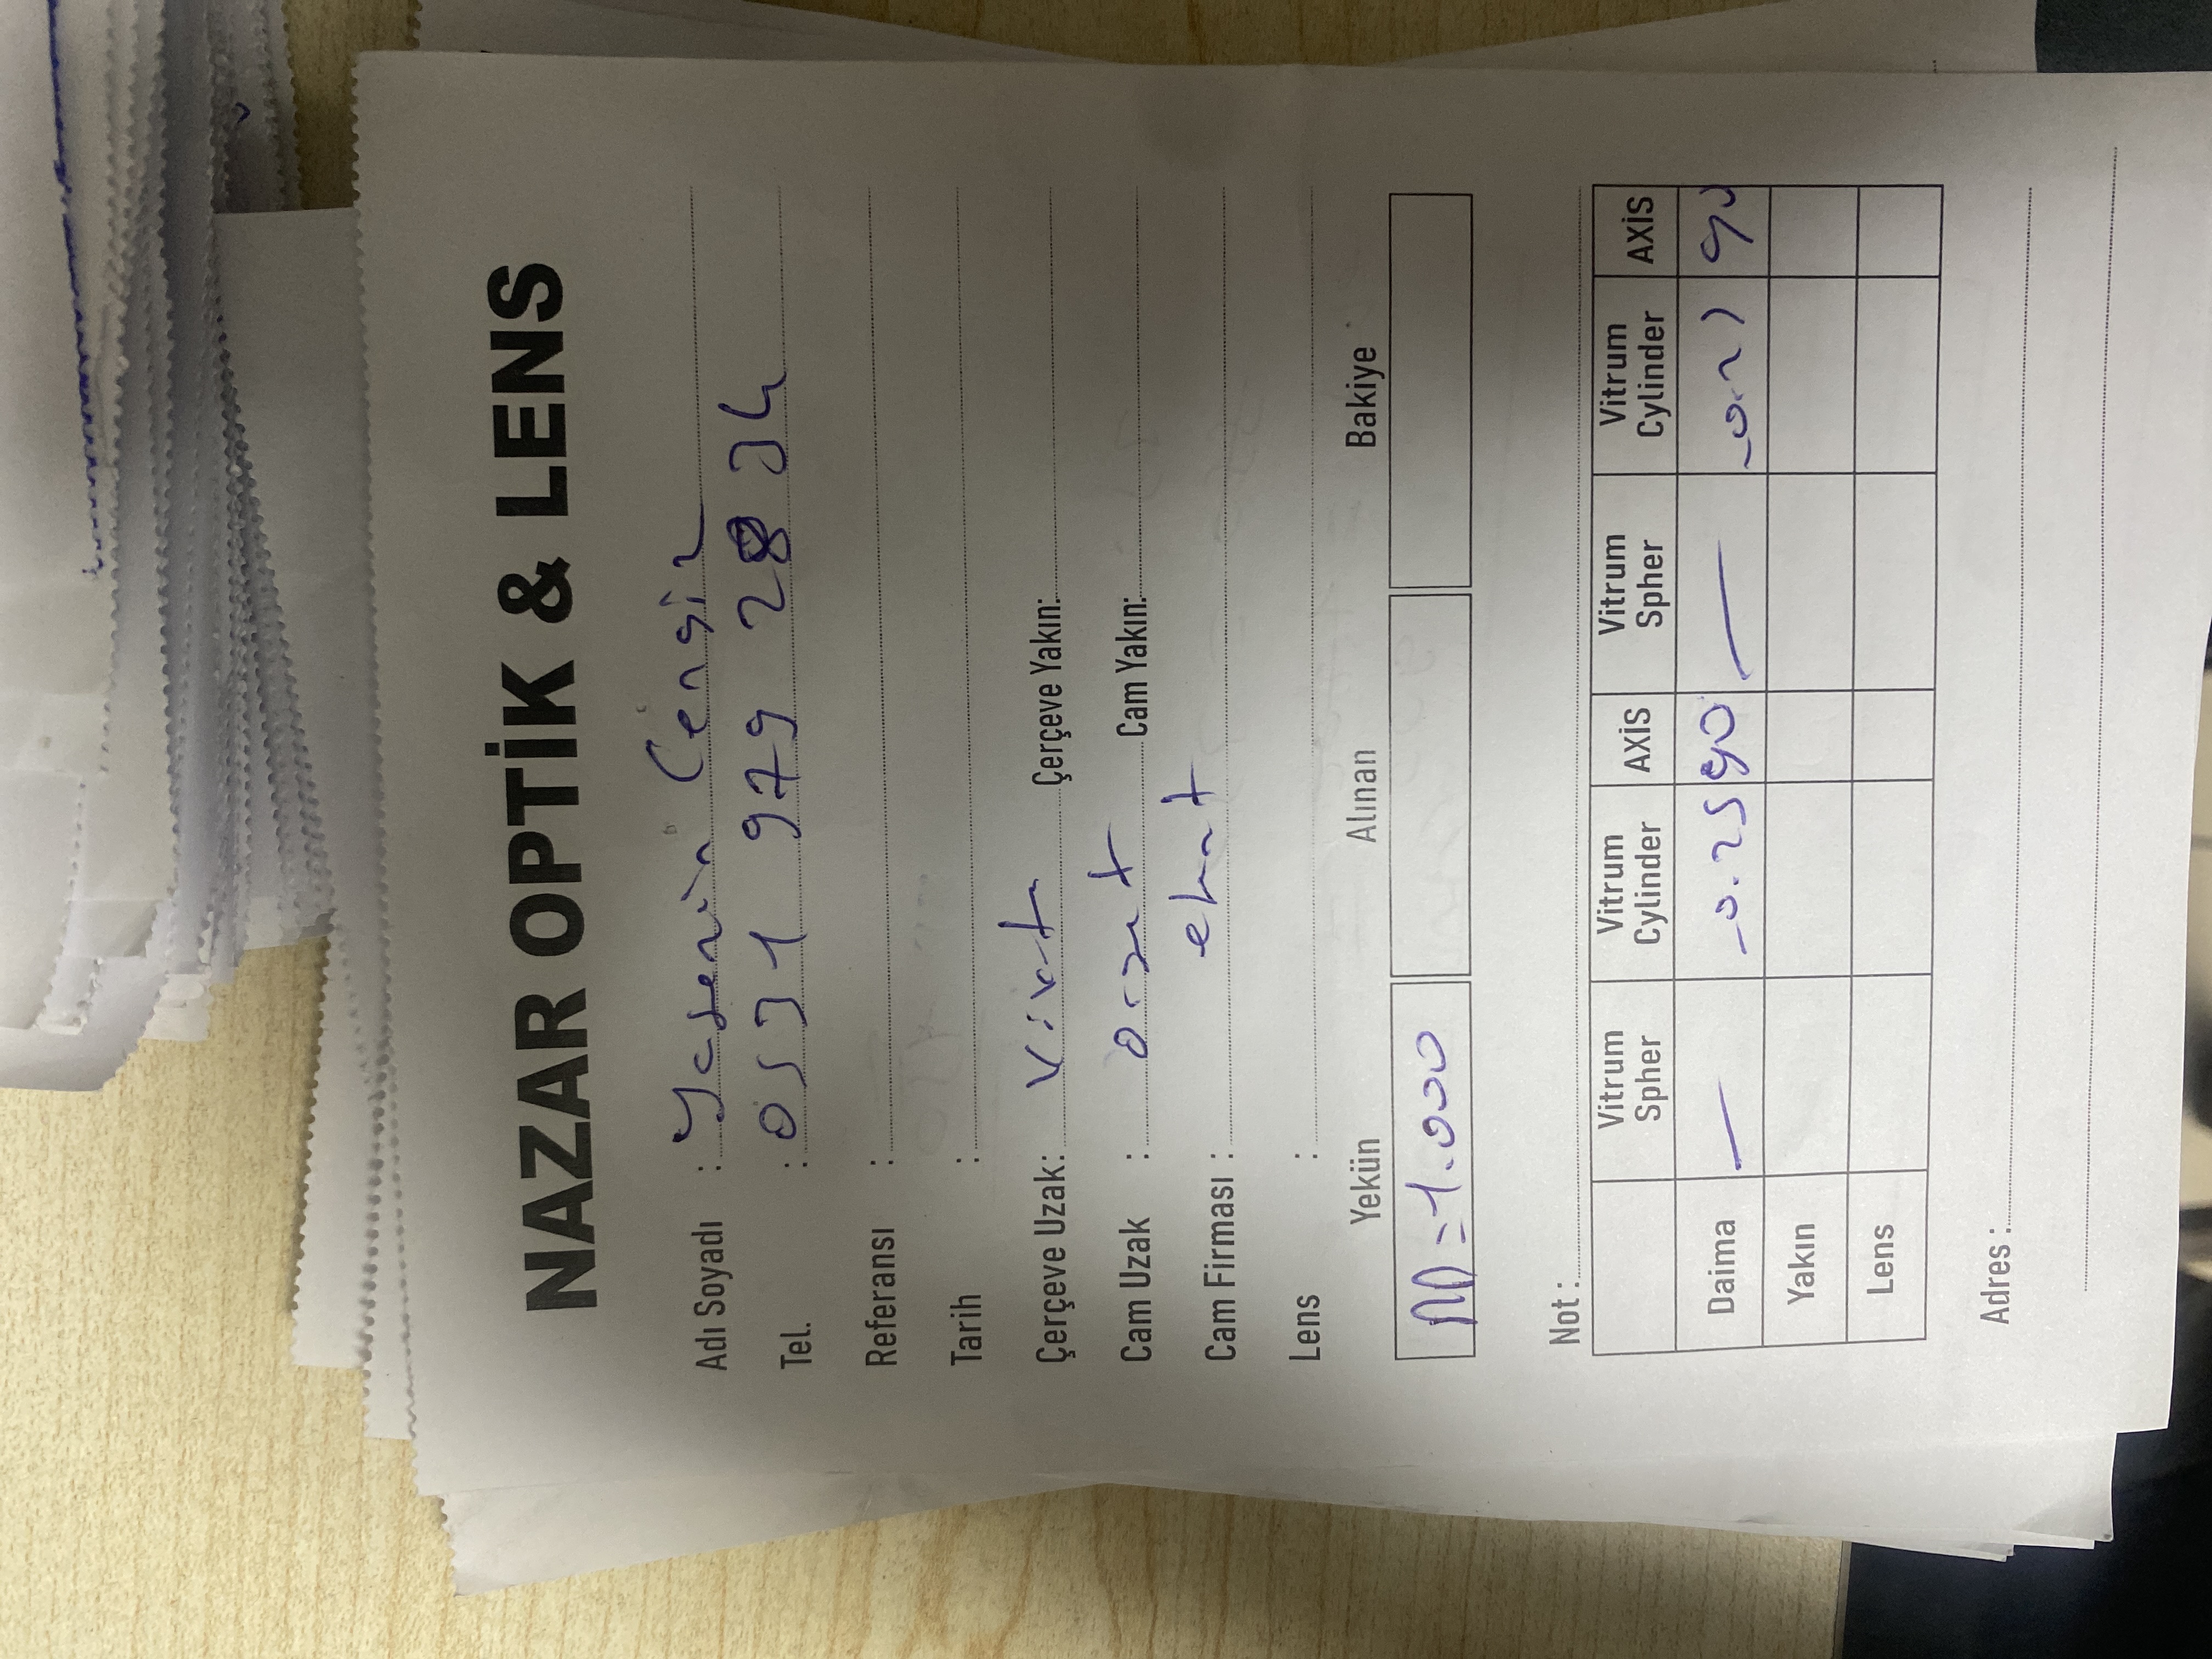 NAZAR OPTİK & LENS
Adı Soyadı : Yasemin Cengiz
Tel. : 0531 979 28 34
Referansı :
Tarih :
Çerçeve Uzak: Çerçeve Yakın:
Cam Uzak : Cam Yakın:
Cam Firması :
Lens :
Yekün Alınan Bakiye
M=1.000
Not :
Vitrum Spher Vitrum Cylinder AXİS Vitrum Spher Vitrum Cylinder AXİS
Daima — -0.25 90 — -0.25 90
Yakın
Lens
Adres :